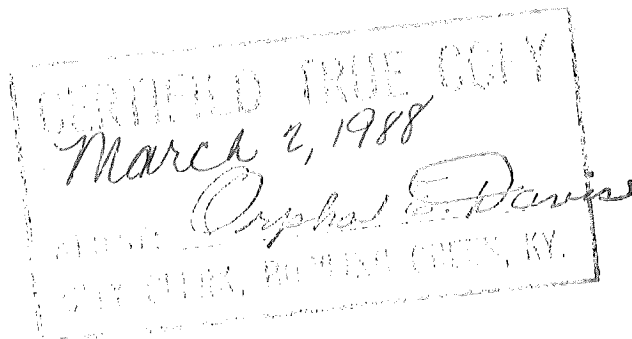 CERTIFIED TRUE COPY
March 2, 1988
ATTEST: Orpha E. Davis
CITY CLERK, BOWLING GREEN, KY.